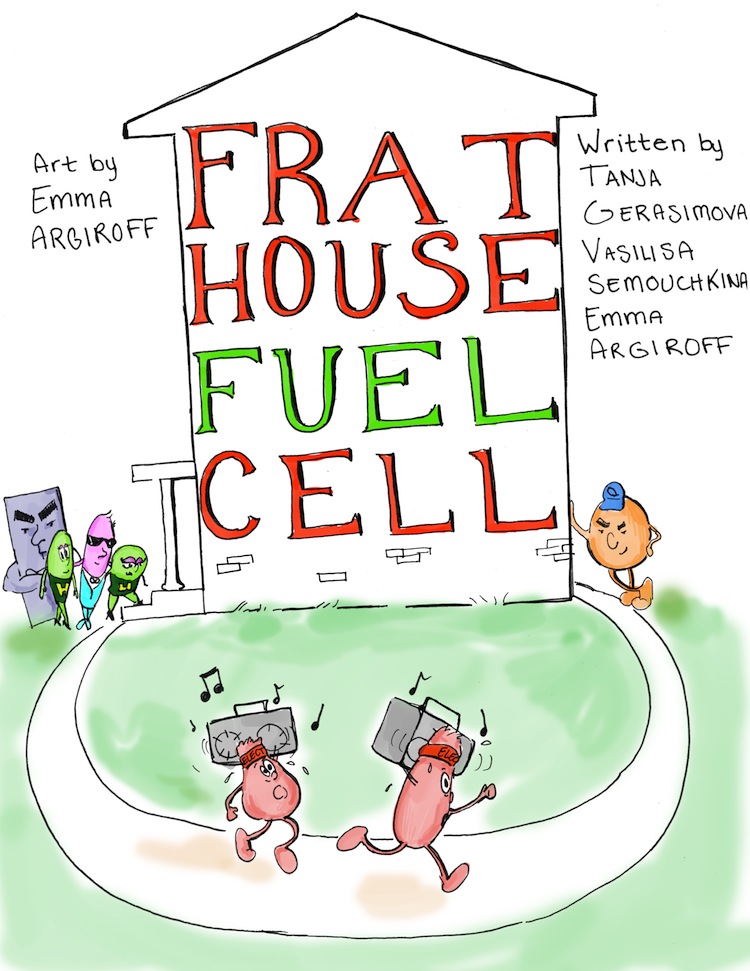 Art by
EMMA
ARGIROFF
FRAT
HOUSE
FUEL
CELL
Written by
TANJA
GERASIMOVA
VASILISA
SEMOUCHKINA
EMMA
ARGIROFF
H
H
O
ELECT
ELEC